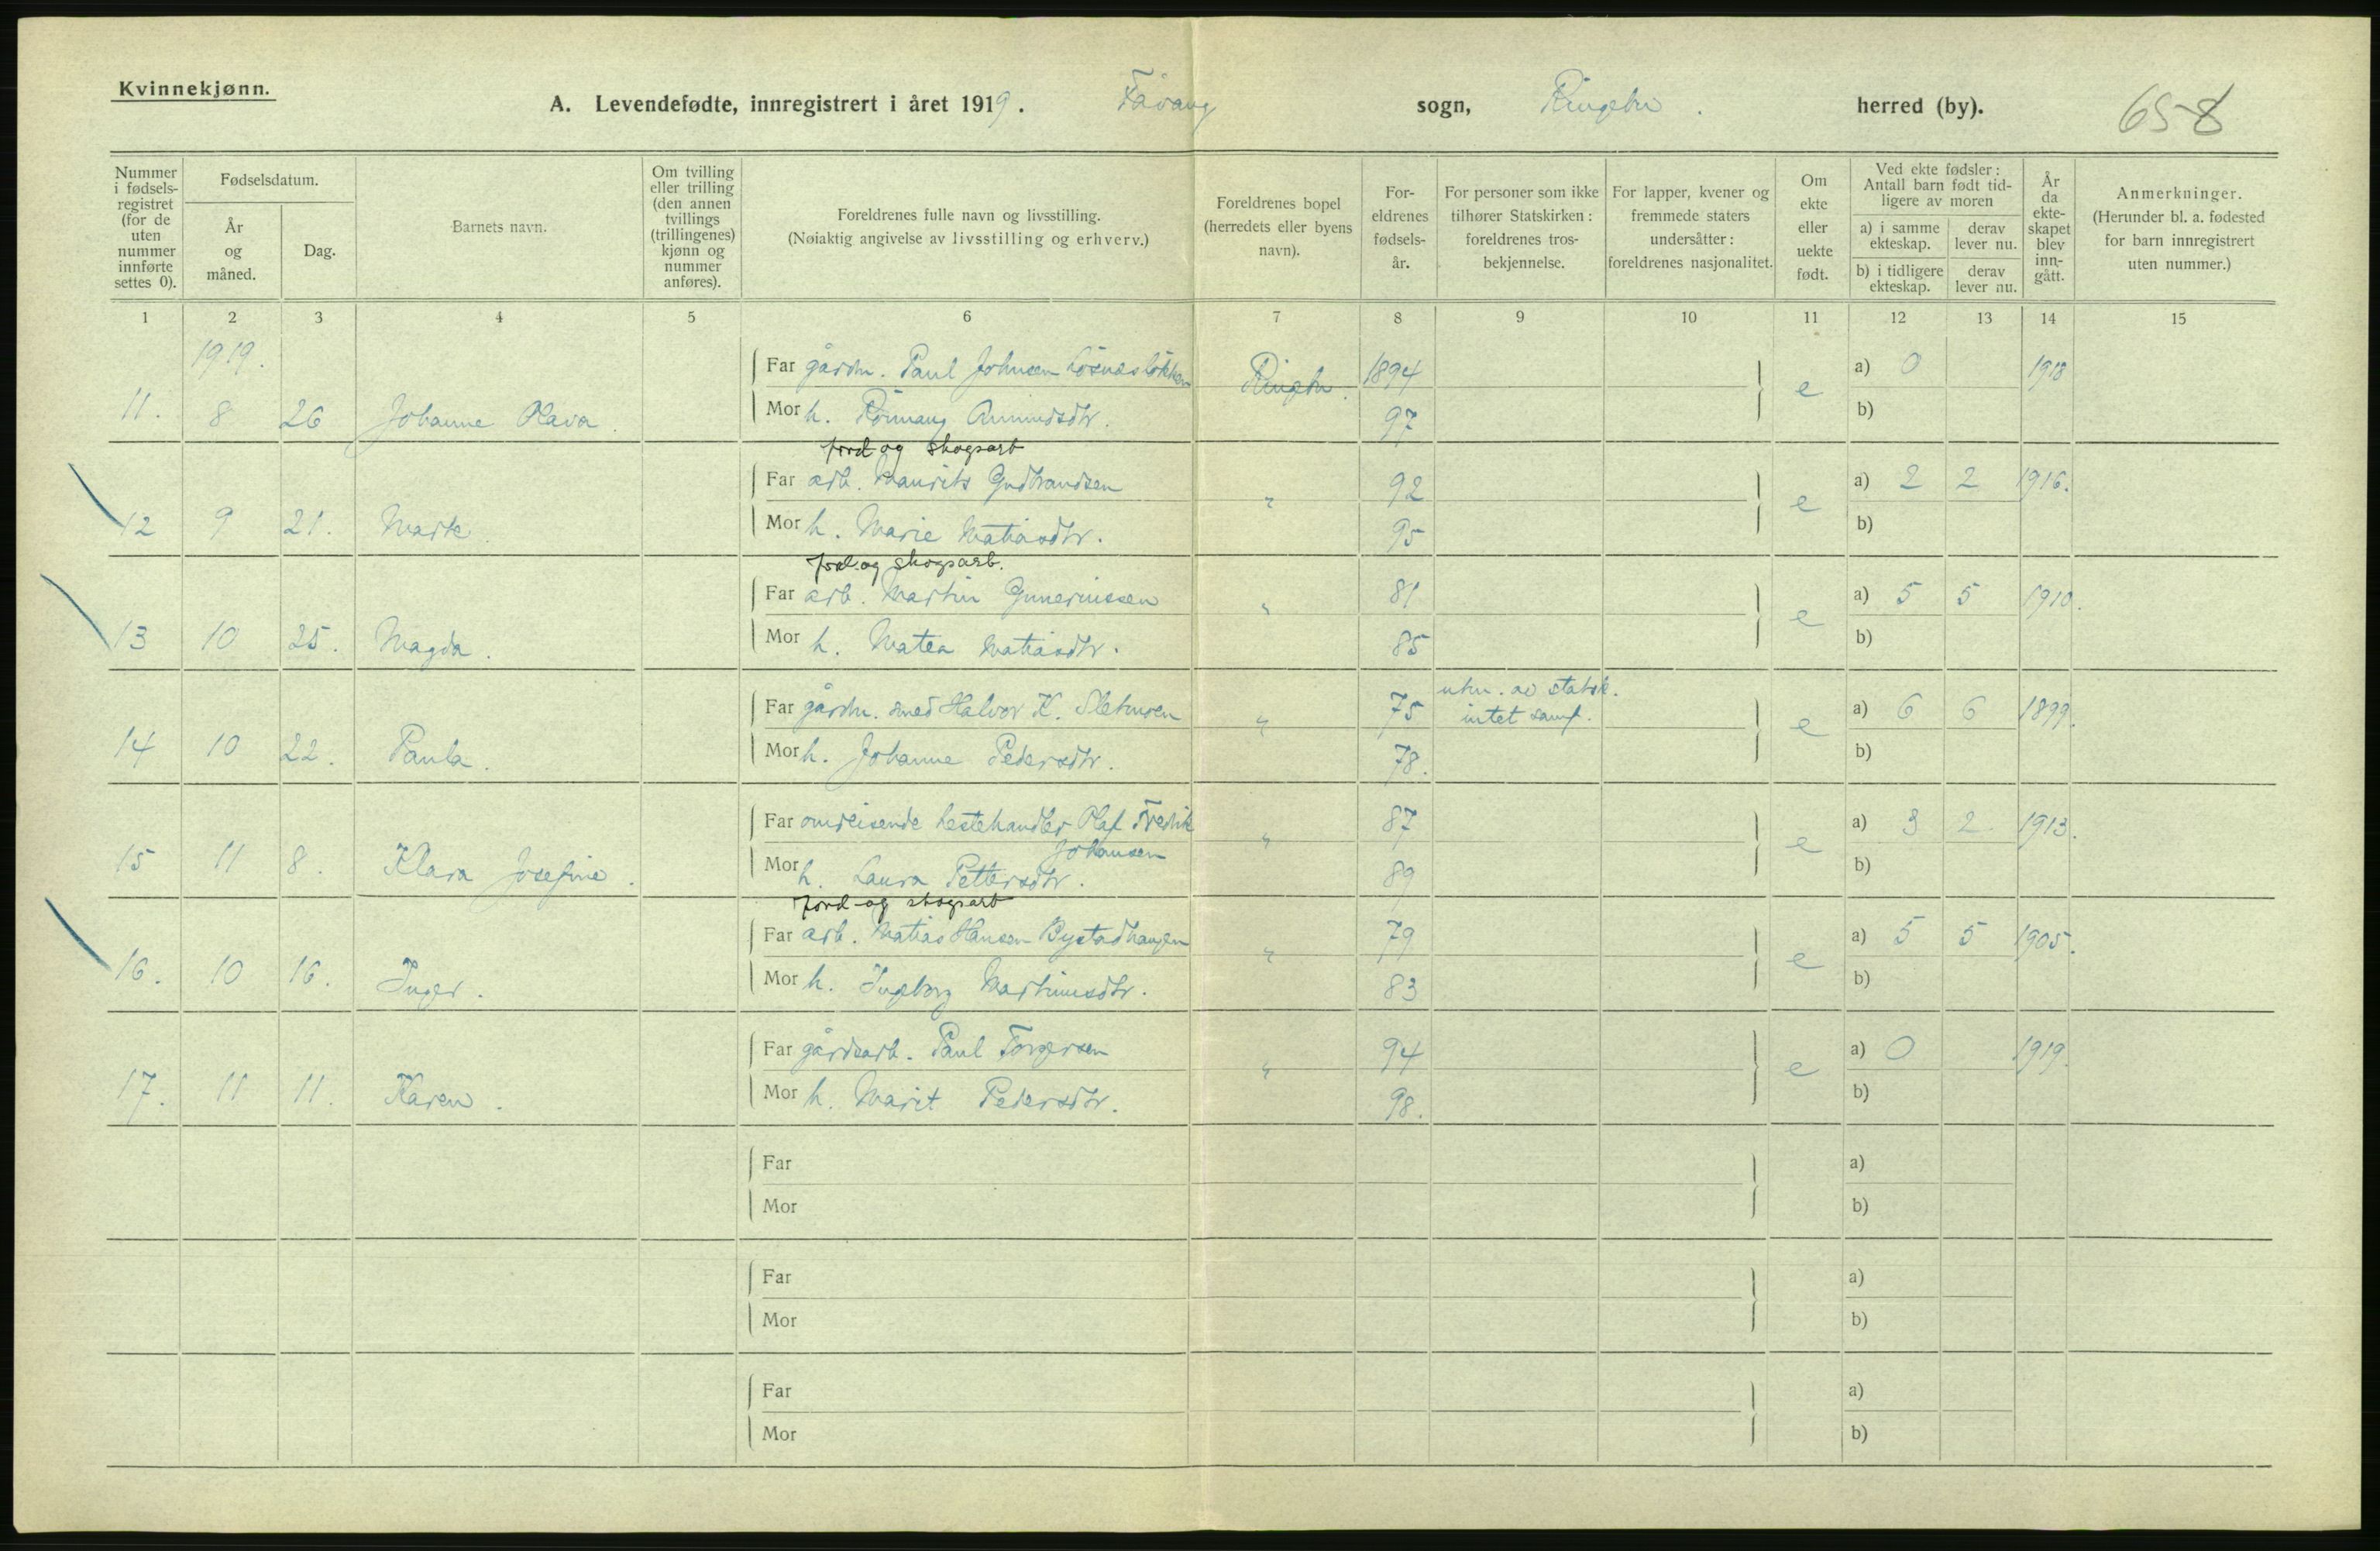 Kvinnekjønn.
A. Levendefødte, innregistrert i året 1919. Fåvang sogn, Ringebu. herred (by). 658
Nummer i fødsels-registret (for de uten nummer innførte settes 0).
Fødselsdatum.
År og måned.
Dag.
Barnets navn.
Om tvilling eller trilling (den annen tvillings (trillingenes) kjønn og nummer anføres).
Foreldrenes fulle navn og livsstilling.
(Nøiaktig angivelse av livsstilling og erhverv.)
Foreldrenes bopel (herredets eller byens navn).
For-eldrenes fødsels-år.
For personer som ikke tilhører Statskirken: foreldrenes tros-bekjennelse.
For lapper, kvener og fremmede staters undersåtter: foreldrenes nasjonalitet.
Om ekte eller uekte født.
Ved ekte fødsler: Antall barn født tid-ligere av moren
a) i samme ekteskap.
derav lever nu.
b) i tidligere ekteskap.
derav lever nu.
År da ekte-skapet blev inn-gått.
Anmerkninger.
(Herunder bl. a. fødested for barn innregistrert uten nummer.)
1 2 3 4 5 6 7 8 9 10 11 12 13 14 15
1919.
Far gårdm. Paul Johnsen Ringebu. 1894 a) 0 1918
11. 8 26 Johanne Olava. Mor h. Rönnaug Amundsdtr. 97 e b)
jord og skogsarb
Far arb. Maurits Gudbrandsen " 92 a) 2 2 1916.
12 9 21. Marte. Mor h. Marie Matiasdtr. 95 e b)
jord og skogsarb.
Far arb. Martin Guneriussen " 81 a) 5 5 1910.
13 10 25. Magda. Mor h. Matea Matiasdtr. 85 e b)
Far gårdm. smed Halvor K. " 75 utm. av statsk. intet samf. a) 6 6 1899.
14 10 22. Paula. Mor h. Johanne Pedersdtr. 78. e b)
Far omreisende hestehandler Olaf Fredrik " 87 a) 3 2 1913.
Johansen
15 11 8. Klara Josefine. Mor h. Laura Pettersdtr. 89 e b)
jord-og skogsarb
Far arb. Matias Hansen Bystadhaugen " 79 a) 5 5 1905.
16. 10 16. Inger. Mor h. Ingeborg Martinusdtr. 83 e b)
Far gårdsarb. Paul Torgersen " 94 a) 0 1919.
17. 11 11. Karen. Mor h. Marit Pedersdtr. 98. e b)
Far a)
Mor b)
Far a)
Mor b)
Far a)
Mor b)